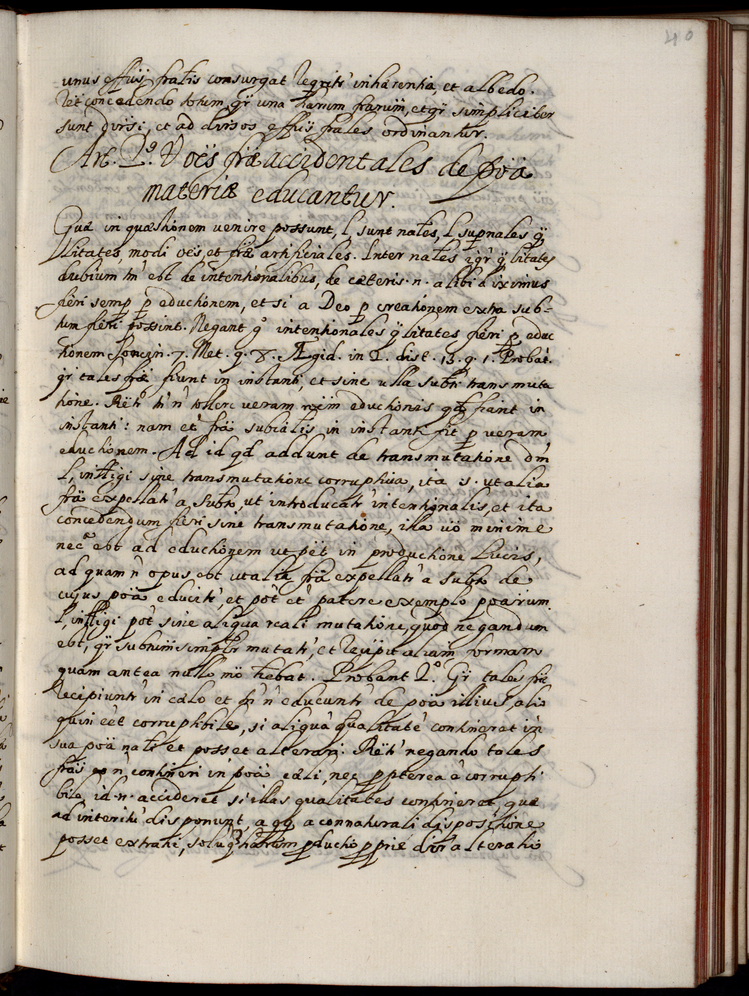 40
unus effūs fr̄alis consurgat Req̄ritr̄ inhærentia, et albedo.
Ret̄ concedendo totum, qr̄ una harum fr̄arum, et qr̄ simpliciter
sunt div̄rsi, et ad div̄rsos effūs fr̄ales ordinantur.
Art. 2.º V. oēs fræ accidentales de poā
materiæ educantur.
Quæ in quæstionem venire possunt, l. sunt nat̄les, l. sup̄nales q̄
litates, modi oēs, et fræ artificiales. Inter nat̄les igr̄ q̄litates
dubium tn̄ est de intentionalibus, de cæteris .n. alibi diximus
fieri semp̄ p̄ eductionem, et si a Deo p̄ creationem extra sub-
tum fieri possint. Negant gº intentionales q̄litates fieri p̄ educ
tionem 7. Met. q. 8. Ægid. in 2. dist. 13. q. 1. Probat.
qr̄ tales fræ fiunt in instanti, et sine ulla subti transmuta
tione. Retr̄ hº n̄ tollere veram rōem eductionis qd̄ fiant in
instanti: nam et frā subiālis in instanti fit p̄ veram
eductionem. Ad id qd̄ addunt de transmutatione dm̄
l, intlligi sine transmutatione corruptiva, ita s. ut alia
frā expellatr̄ a subto, ut introducatr̄ intentionalis, et ita
concedendum fieri sine transmutatione, illa uō minime
necª est ad eductionem ut pēt in productione Lucis,
ad quam n̄ opus est ut alia frā expellatr̄ a subto de
cujus poā educitr̄, et pōt et̄ patere exemplo
l, intlligi pōt sine aliqua reali mutatione, quod negandum
est, qr̄ subtum simplr̄ mutatr̄, et Recipit aliam formam
quam antea nullo mō hēbat. Probant 2.º Qr̄ tales fræ
Recipiuntr̄ in cælo et tn̄ n̄ educuntr̄ de poā illius, alio
quin eēt corruptibile, si aliquā qualitatē contineret in
sua poā nat̄li et posset alterari. Retr̄ negando tales
fras n̄ contineri in poā cæli, nec p̄pterea ē corrupti
bile id .n. accideret si illas qualitates contineret, quæ
ad interitū disponunt, a connaturali dispositione
posset extrahi, p̄ductio p̄prie alteratio